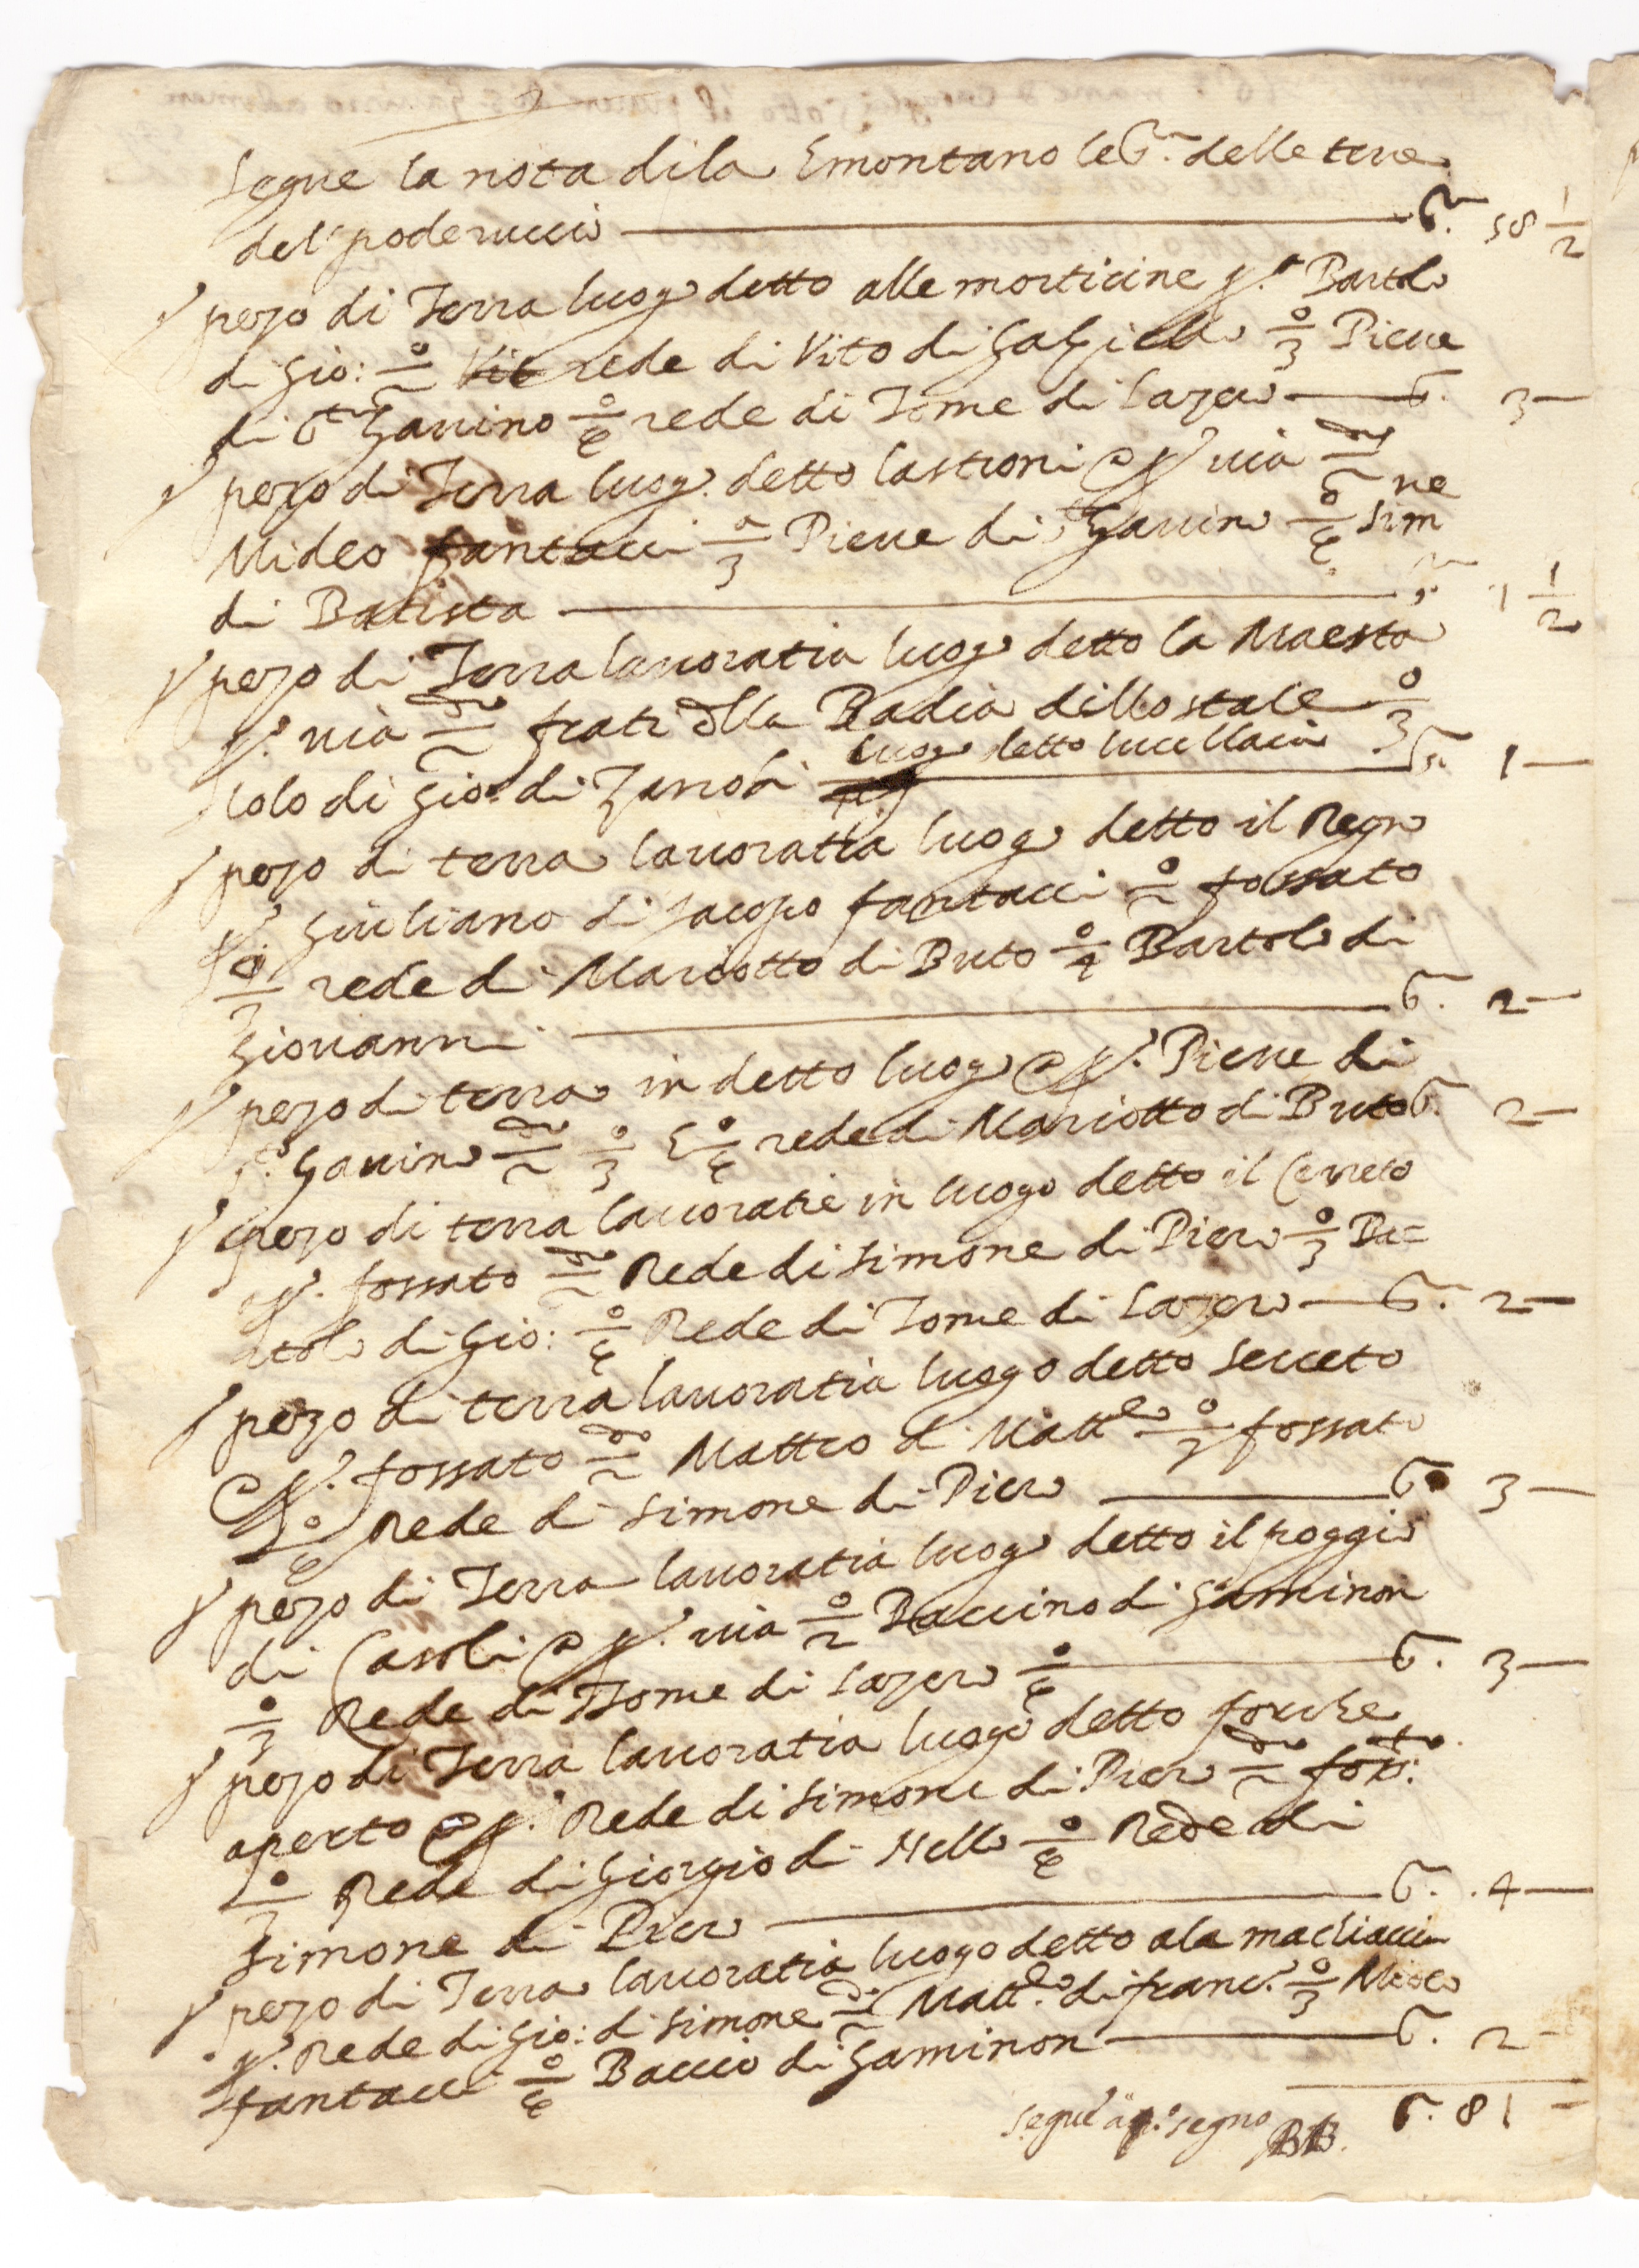 Segue la nota di la E montano le S.ra delle terre
del poderuccio S.ra 58 1/2
1 pezo di Terra luog detto alle morticine p.o Bartolo
di Gio: 0/2 rede di Vito di Gabriello 0/3 Pieve
di S.to Gavino 0/4 rede di Tome di Lazero S. 3
1 pezo di Terra luog. detto lastroni a p.o via 0/2
Mideo fantacci 0/3 Pieve di S.to Gavino 0/4 Sim
di Batista S. 1 1/2
1 pezo di Terra lavoratia luog detto la Maesta
p.o via 0/2 frati della Badia dillostale 0/3
colo di Gio: di Zanobi luog detto lucellaia S. 1
1 pezo di terra lavoratia luog detto il Regno
p.o Giuliano di Jacopo fantacci 0/2 fossato
0/3 rede di Mariotto di Buto 0/4 Bartolo di
Giovanni S. 2
1 pezo di terra in detto luog a p.o Pieve di
S.to Gavino 0/2 0/3 E 0/4 rede di Mariotto di Buto S. 2
1 pezo di terra lavoratie in luogo detto il Cerreto
a p.o fossato 0/2 Rede di Simone di Piero 0/3 Ba=
rtolo di Gio: 0/4 Rede di Tome di Lazero S. 2
1 pezo di terra lavoratia luogo detto Serceto
a p.o fossato 0/2 Matteo di Matt.o 0/3 fossato
0/4 Rede di Simone di Piero S. 3
1 pezo di Terra lavoratia luog detto il poggio
di Casoli a p.o via 0/2 Baccino di Gaminon
0/3 Rede di Tome di Lazero 0/4 S. 3
1 pezo di Terra lavoratia luogo detto forche
aperto a p.o Rede di Simone di Piero 0/2 fos.to
0/3 Rede di Giorgio di Nello 0/4 Rede di
Simone di Piero S. 4
1 pezo di Terra lavoratia luogo detto ala magliaccia
a p.o Rede di Gio: di Simone 0/2 Matt.o di franc.o 0/3
fantacci 0/4 Baccio di Gaminon S. 2
Segue a q.o segno BB. S. 81